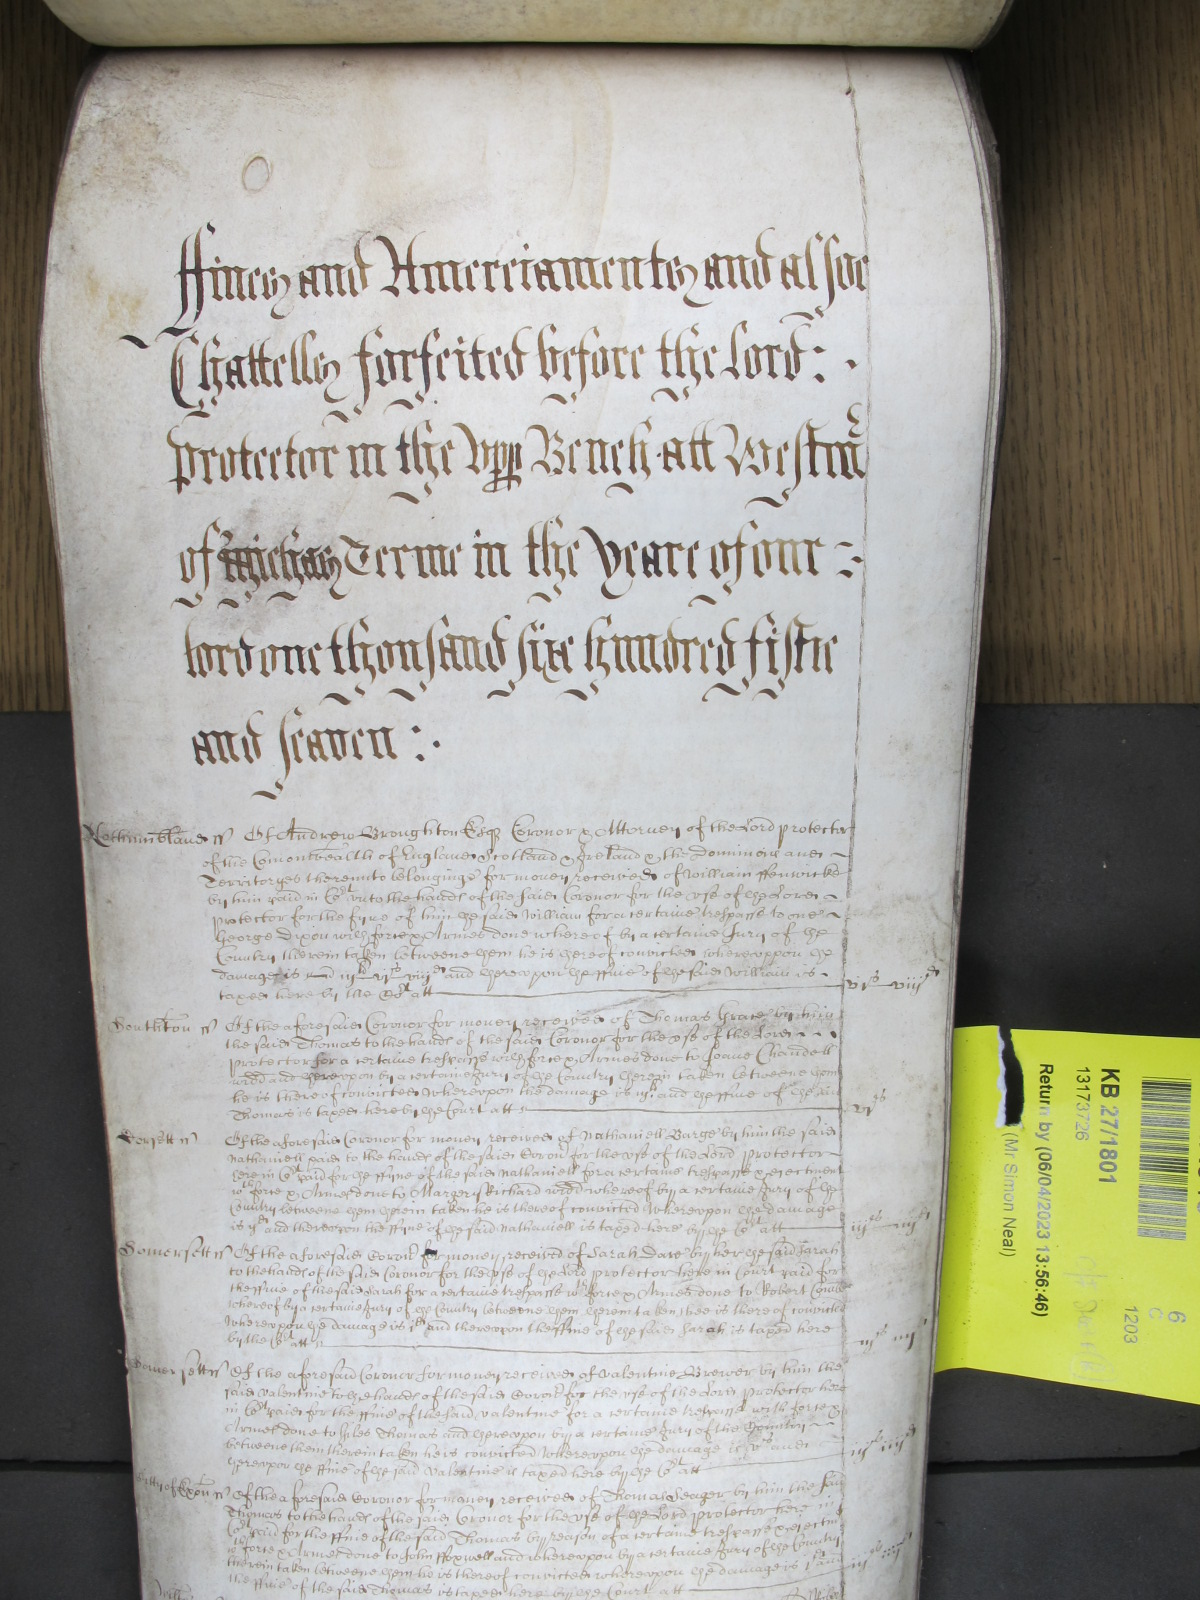 Fines and Amerciamentes and alsoe
Chattelles forfeited before the Lord
Protector in the Upp Bench att Westm
of Michas Terme in the Yeare of our
lord one thousand sixe hundred fiftie
and seaven
Northumbland ss Of Andrew Broughton Esq Coronor & Attorney of the Lord Protector
of the Comonwealth of England Scotland & Ireland & the Dominions and
Territoryes thereunto belonginge for money received of William ffenwicke
by him paid in Cot unto the hands of the said Coronor for the use of the Lord
Protector for the fyne of him the said William for a certaine trespasse to one
George Dixon with force & Armes done whereof by a certaine Jury of the
Country therein taken betweene them he is thereof convicted whereuppon the
damage is and thereuppon the ffine of the said William is
taxed here by the Cot att vis viiid
Southton ss Of the aforesaid Coronor for money received of Thomas Grace by him
the said Thomas to the hands of the said Coronor for the use of the Lord
Protector for a certaine trespasse with force & Armes done to Joane Chandell
widd and thereuppon by a certaine Jury of the Country therein taken betweene them
he is thereof convicted whereuppon the damage is and the ffine of the said
Thomas is taxed here by the Court att vs
Dorsett ss Of the aforesaid Coronor for money received of Nathaniell Barge by him the said
Nathaniell paid to the hands of the said Coron for the use of the Lord Protector
here in Cot paid for the ffyne of the said Nathaniell for a certaine trespasse & ejectment
wth force & Armes done to Margery Richard widd whereof by a certaine Jury of the
Country betweene them therein taken he is thereof convicted Whereuppon the damage
is and thereuppon the ffine of the said Nathaniell is taxed here by the Cot att iiis iiiid
Somersett ss Of the aforesaid Coron for money received of Sarah Dare by her the said Sarah
to the hands of the said Coronor for the use of the Lord Protector here in Court paid for
the ffine of the said Sarah for a certaine trespasse wth force & Armes done to Robert
whereof by a certaine Jury of the Country betweene them therein taken shee is thereof convicted
Whereuppon the damage is and thereuppon the ffine of the said Sarah is taxed here
by the Cot att iiis iiiid
Somersett ss Of the aforesaid Coronor for money received of Valentine Brewer by him the
said Valentine to the hands of the said Coron for the use of the Lord Protector here
in Cot paid for the ffine of the said Valentine for a certaine trespasse with force &
Armes done to Giles Thomas and thereuppon by a certaine Jury of the Country
betweene them therein taken he is convicted Whereuppon the damage is and
thereuppon the ffine of the said Valentine is taxed here by the Cot att iiis iiiid
Citty of Exon ss Of the aforesaid Coronor for money received of Thomas Seager by him the said
Thomas to the hands of the said Coronor for the use of the Lord Protector here in
Cot paid for the ffine of the said Thomas by reason of a certaine trespasse & ejectmt
wth force & Armes done to John ffoxwell and whereuppon by a certaine Jury of the Country
therein taken betweene them he is thereof convicted whereuppon the damage is and
the ffine of the said Thomas is taxed here by the Court att iiis iiiid
KB 27/1801
13173726
Return by (06/04/2023 13:56:46)
(Mr Simon Neal)
6
C
1203